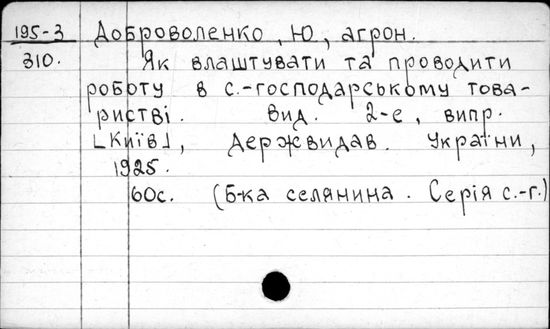 195-3 Доброволенко, Ю, агрон.
310. Як влаштувати та проводити
роботу в с.-господарському това-
ристві. Вид. 2-е, випр.
[Київ], Держвидав. України,
1925.
60с. (Б-ка селянина. Серія с.-г.)